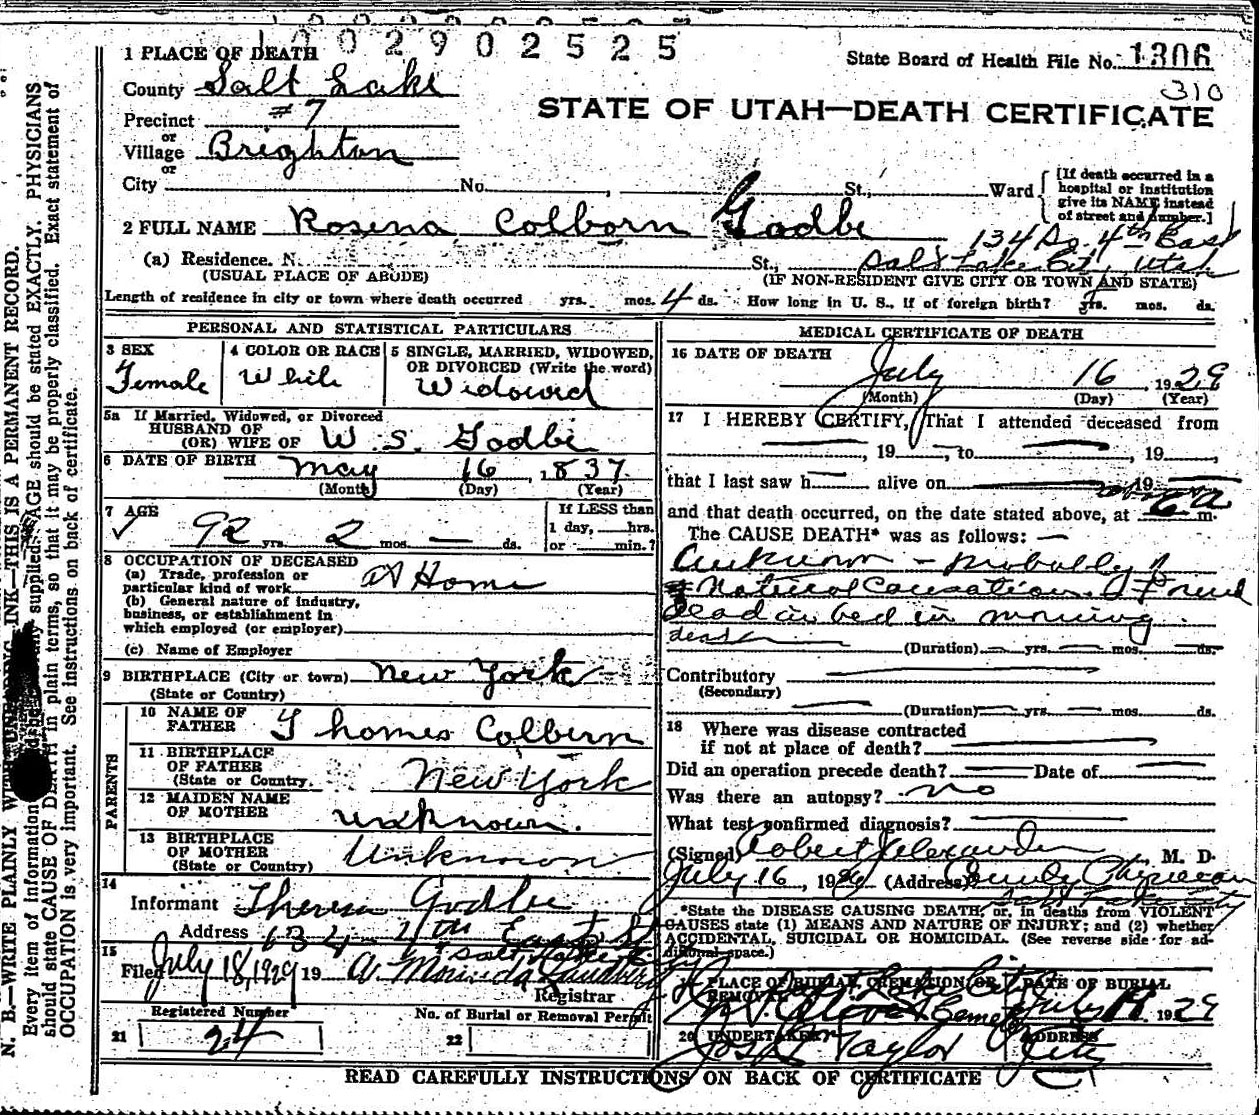 0 0 2 9 0 2 5 2 5
State Board of Health File No. 1306
310
STATE OF UTAH—DEATH CERTIFICATE
1 PLACE OF DEATH
County Salt Lake
Precinct #7
or
Village Brighton
or
City No. St., Ward
[If death occurred in a
hospital or institution
give its NAME instead
of street and number.]
2 FULL NAME Rosena Colborn Godbe
134 So. 4th East
(a) Residence. N. St., Salt Lake City, Utah
(USUAL PLACE OF ABODE) (IF NON-RESIDENT GIVE CITY OR TOWN AND STATE)
Length of residence in city or town where death occurred yrs. mos. 4 ds. How long in U. S., if of foreign birth? yrs. mos. ds.
PERSONAL AND STATISTICAL PARTICULARS
3 SEX
Female
4 COLOR OR RACE
White
5 SINGLE, MARRIED, WIDOWED,
OR DIVORCED (Write the word)
Widowed
5a If Married, Widowed, or Divorced
HUSBAND OF
(OR) WIFE OF W. S. Godbe
6 DATE OF BIRTH May 16, 1837
(Month) (Day) (Year)
7 AGE
92 yrs. 2 mos. — ds.
If LESS than
1 day, hrs.
or min.?
8 OCCUPATION OF DECEASED
(a) Trade, profession or
particular kind of work At Home
(b) General nature of industry,
business, or establishment in
which employed (or employer)
(c) Name of Employer
9 BIRTHPLACE (City or town) New York
(State or Country)
PARENTS
10 NAME OF
FATHER Thomas Colborn
11 BIRTHPLACE
OF FATHER
(State or Country New York
12 MAIDEN NAME
OF MOTHER unknown.
13 BIRTHPLACE
OF MOTHER
(State or Country) Unknown
14
Informant Theresa Godbe
Address 134 4th East St
Salt Lake City
15
Filed July 18, 1929 19 A. Registrar
Registered Number
21 24
No. of Burial or Removal Permit
22
MEDICAL CERTIFICATE OF DEATH
16 DATE OF DEATH
July 16, 1929
(Month) (Day) (Year)
17 I HEREBY CERTIFY, That I attended deceased from
, 19 , to , 19 ,
that I last saw h alive on 19
and that death occurred, on the date stated above, at 6 a m.
The CAUSE DEATH* was as follows:
Unknown - Probably
Natural Causation. Found
dead in bed in morning
(Duration) yrs. mos. ds.
Contributory
(Secondary)
(Duration) yrs. mos. ds.
18 Where was disease contracted
if not at place of death?
Did an operation precede death? Date of
Was there an autopsy? No
What test confirmed diagnosis?
(Signed) Robert Alexander, M. D.
July 16, 1929 (Address) County Physician
Salt Lake City
*State the DISEASE CAUSING DEATH, or, in deaths from VIOLENT
CAUSES state (1) MEANS AND NATURE OF INJURY; and (2) whether
ACCIDENTAL, SUICIDAL OR HOMICIDAL. (See reverse side for ad-
ditional space.)
19 PLACE OF BURIAL, CREMATION, OR REMOVAL
Salt Lake City
Mt. Olivet Cemetery
DATE OF BURIAL
July 1929
20 UNDERTAKER
Jos. Taylor
ADDRESS
City
READ CAREFULLY INSTRUCTIONS ON BACK OF CERTIFICATE
N. B.—WRITE PLAINLY WITH UNFADING INK—THIS IS A PERMANENT RECORD.
Every item of information should be supplied. AGE should be stated EXACTLY. PHYSICIANS
should state CAUSE OF DEATH in plain terms, so that it may be properly classified. Exact statement of
OCCUPATION is very important. See instructions on back of certificate.